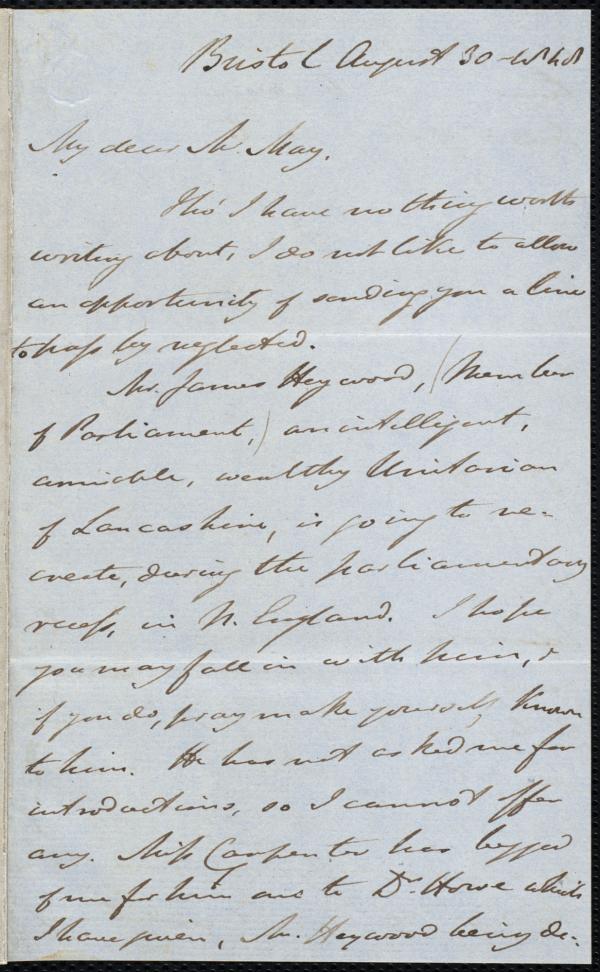 Bristol August 30 - 1848
My dear Mr. May,
Tho' I have nothing worth
writing about, I do not like to allow
an opportunity of sending you a line
to pass by neglected.
Mr. James Heywood, (Member
of Parliament,) an intelligent,
amiable, wealthy Unitarian
of Lancashire, is going to re-
create, during the parliamentary
recess, in N. England. I hope
you may fall in with him, &
if you do, pray make yourself known
to him. He has not asked me for
introductions, so I cannot offer
any. Miss Carpenter has begged
of me for him one to Dr. Howe which
I have given, Mr. Heywood being de-